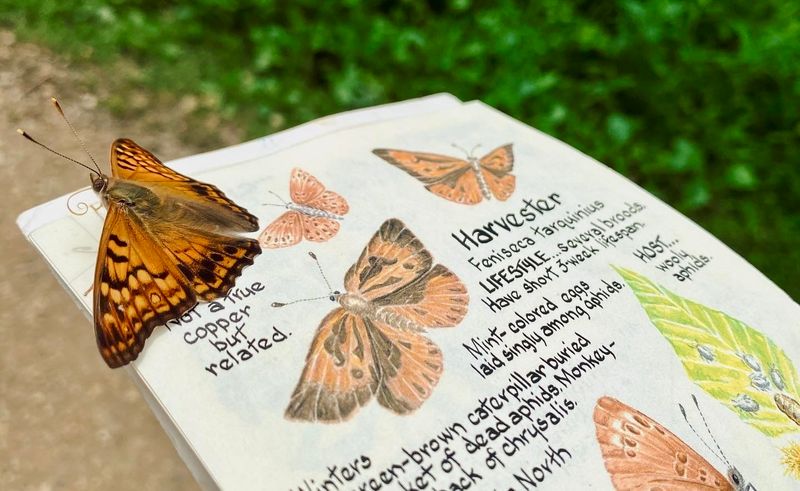 Harvester
Feniseca Tarquinius
LIFESTYLE... several broods.
Have short 3 week lifespan.
Mint-colored eggs
laid singly among aphids.
HOST...
wooly
aphids.
Not a true
copper
but
related.
Winters
green-brown caterpillar buried
ket of dead aphids. Monkey-
back of chrysalis.
North